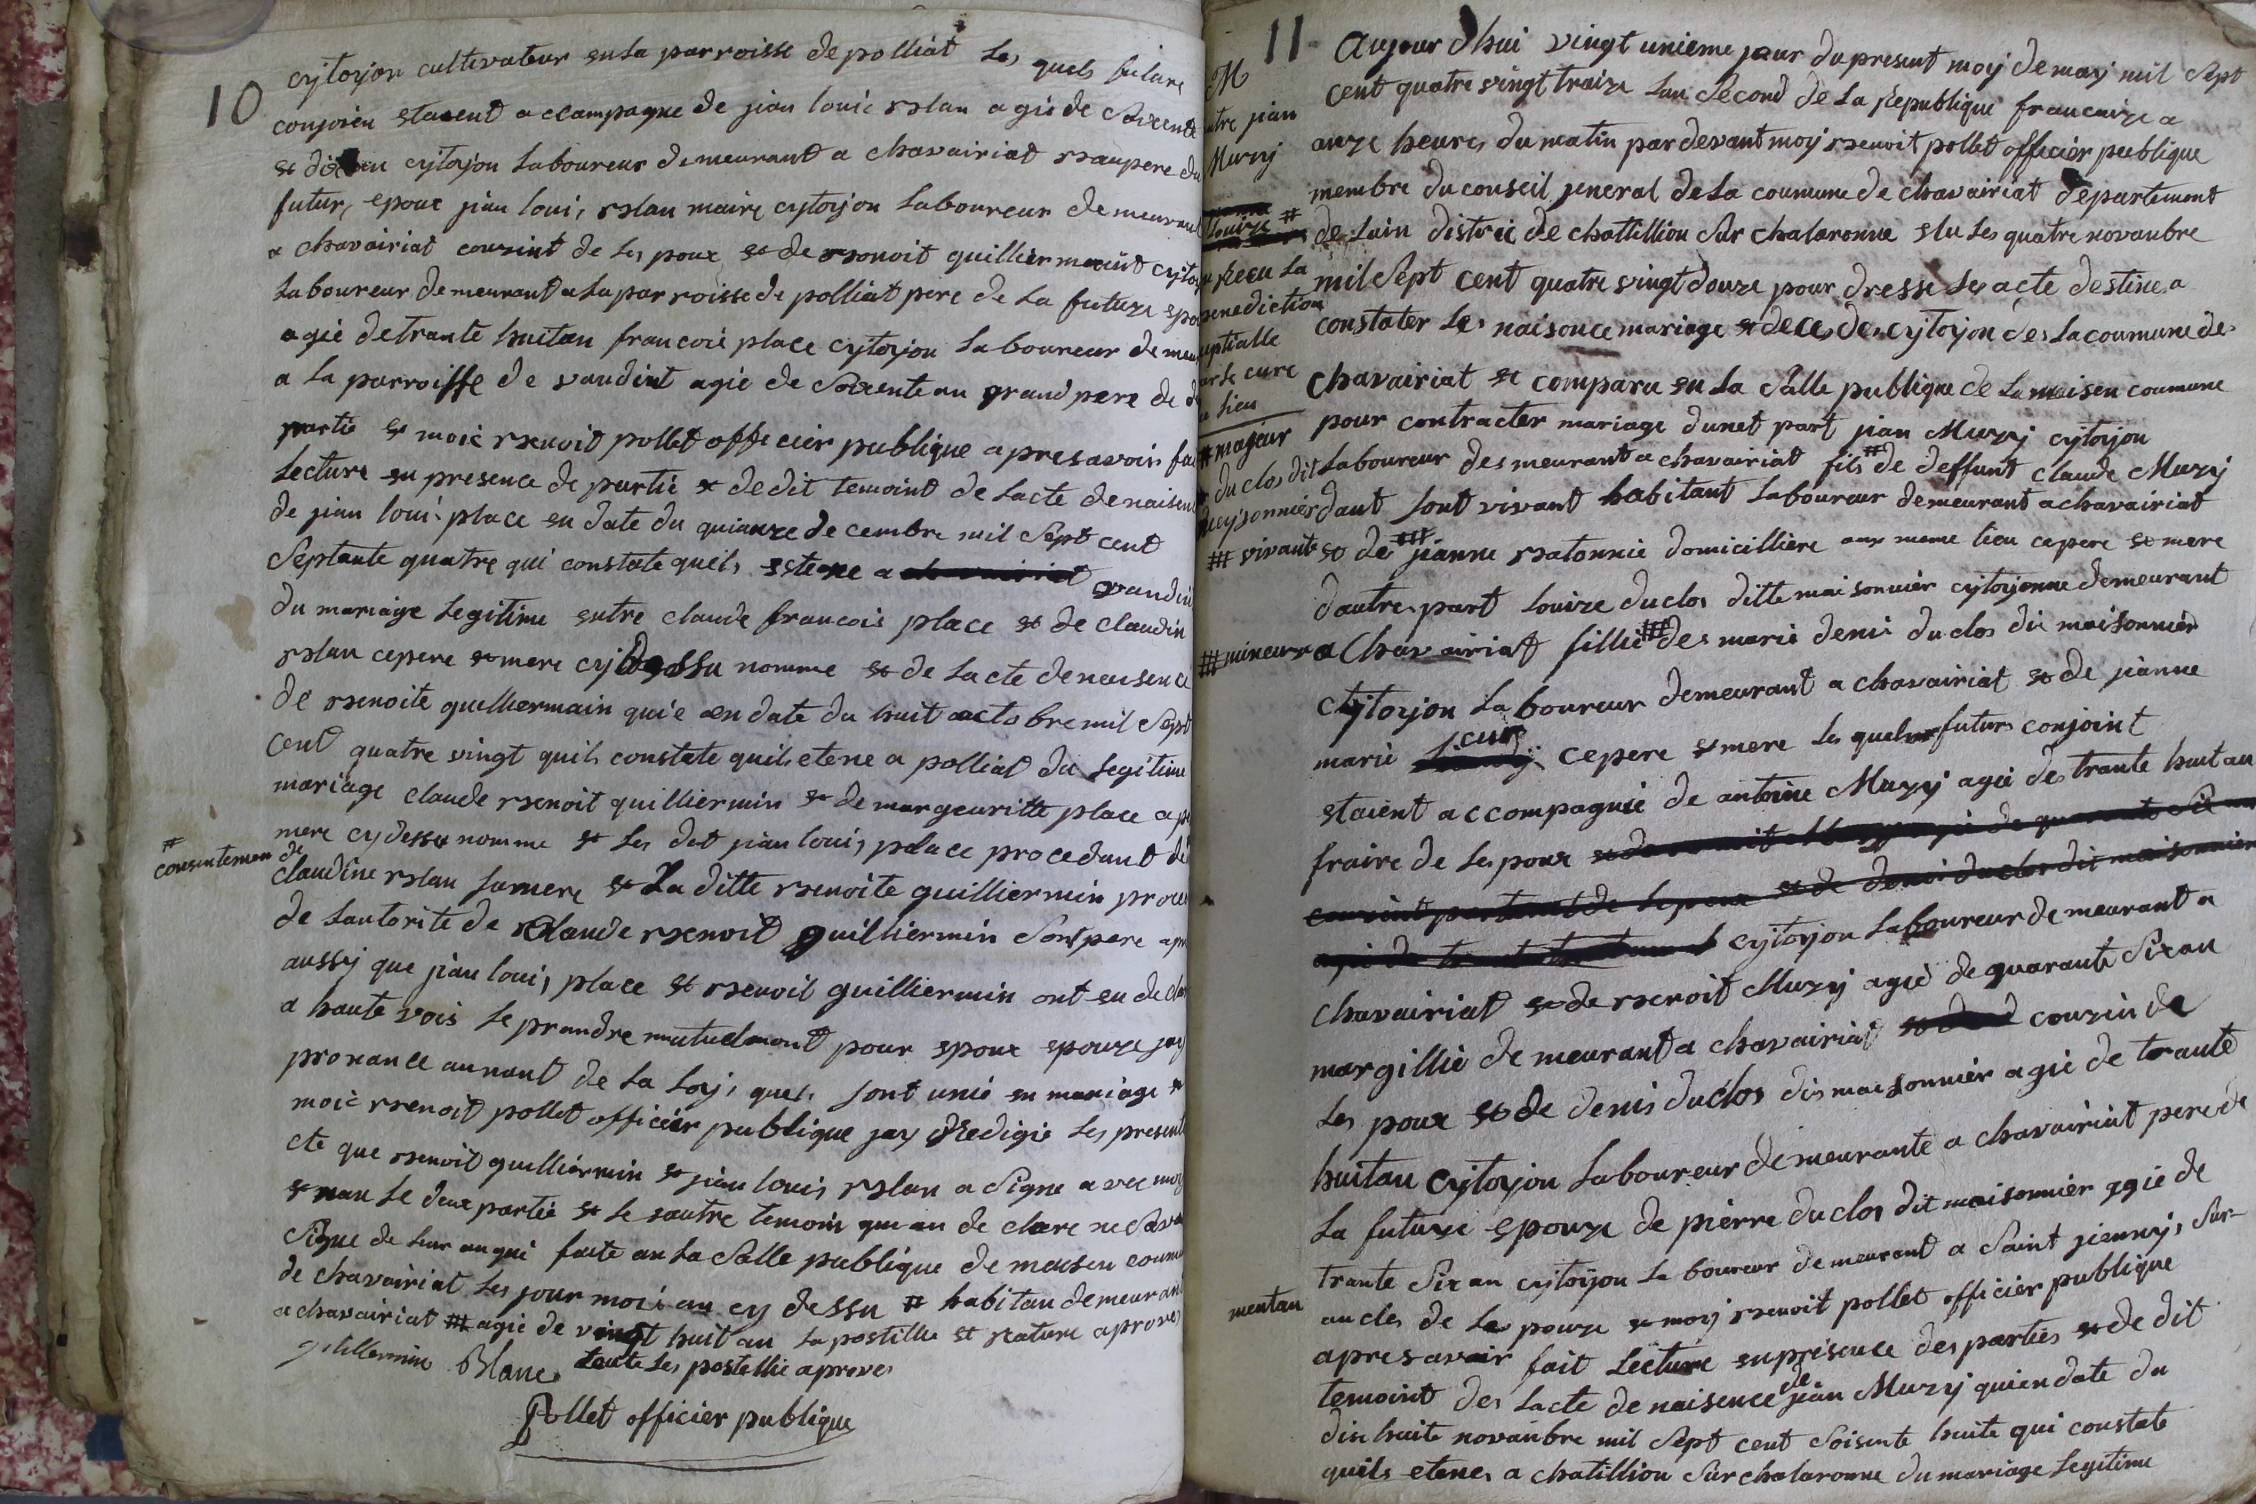 10
cytoyon cultivateur en la parroisse de polliat les quels future
conjoien etaient accampagne de jian louis blan agie de soixente
et dix an cytoyon laboureur demeurant a chavairiat beaupere du
futur, epoux jian loui, blan maire cytoyon laboureur demeurant
a chavairiat couzint de les poux et de benoit quilliermint cyto
laboureur demeurant a la parroisse de polliat pere de la future epo
agie de trante huitan francois place cytoyon laboureur demeu
a la parroisse de vandint agie de soixente an grand pere de
partie et moie benoit pollet officier publique apres avoir fai
lecture en presence de partie et de dit temoint de lacte de naisen
de jian loui place en date du quinuze decembre mil sept cent
septante quatre qui constate quils etene a vandin
du mariage legitime entre claude francois place et de claudin
blan cepere et mere cy dessu nomme et de lacte de naisence
de benoite quilliermain qui e en date du huit octobre mil sept
cent quatre vingt quils constate quils etene a polliat du legitime
mariage claude benoit quilliermin et de margeuritte place a pe
mere cy dessu nomme et les dit jian loui, place procedant de
# consentemen de
claudine blan sa mere et la ditte benoite quilliermin proce
de lautorite de claude benoit quilliermin sont pere apre
aussy que jian loui, place et benoit quilliermin ont eu declar
a haute vois se prandre mutuelmont pour epoux epouze jay
pronance aunant de la loy, quel, sont unie en mariage et
moie benoit pollet officier publique jay redigie les present
cte que benoit quilliermin et jian louis blan a signe avec moy
et nan le deux partie et le sautre temoin que an declare ne sava
signe de leur anqui faite an la salle publique de maisen coumu
de chavairiat les jour moi an cy dessu # habitan demeurant
a chavairiat ## agie de vingt huit an la postille et rature aprove
guillermin Blanc toute les postellie aproves
Pollet officier publique
11
M
ntre jian
Muzy
louize #
a recu la
benediction
uptialle
par le cure
du lieu
# majeur
duclos dit
meysonnier
## vivante
### mineure
mentan
Aujour dhui vingt unieme jour du present moy de may mil sept
cent quatre vingt traize lan second de la republique francaize a
anze heures du matin par devant moy benoit pollet officier publique
membre du conseil jeneral de la coumune de chavairiat departement
de lain distric de chattillion sur chalaronne elu les quatre novanbre
mil sept cent quatre vingt douze pour dresse les acte destine a
constater les naisance mariage et deces des cytoyon des la coumune de
chavairiat et comparu en la salle publique de la maisen coumune
pour contracter mariage dunet part jian Muzy cytoyon
laboureur des meurant a chavairiat fils # de deffunt claude Muzy
dant sont vivant habitant laboureur demeurant a chavairiat
et de ## jianne batonnie domicilliere aux meme lieu cepere et mere
dautre part louize duclos ditte maisonnier cytoyenne demeurant
a Chavairiat fillie ### des marie denis duclos dis maisonnier
cytoyon laboureur demeurant a chavairiat et de jianne
marie cure cepere et mere les quels futurs conjoint
etaient accompagnie de antoine Muzy agie des trante huit an
fraire de les poux et de benoit Muzy agie de quarante six an
couzint parternel de lepoux et de denis duclos dit maisonnier
agie de trante huit an cytoyon laboureur demeurant a
chavairiat et de benoit Muzy agie de quarante six an
margillie demeurant a chavairiat couzin de
les poux et de denis duclos dis maisonnier agie de trante
huitan cytoyon laboureur demeurante a chavairiat pere de
la future epouze de pierre duclos dit maisonnier agie de
trante six an cytoyon laboureur demeurant a saint jienny, sur-
aucles de les pouze et moy benoit pollet officier publique
apres avoir fait lecture en presence des parties et de dit
temoint des lacte de naisence de jian Muzy qui en date du
dix huite novanbre mil sept cent soisente huite qui constate
quils etenes a chatillion sur chalaronne du mariage legitime